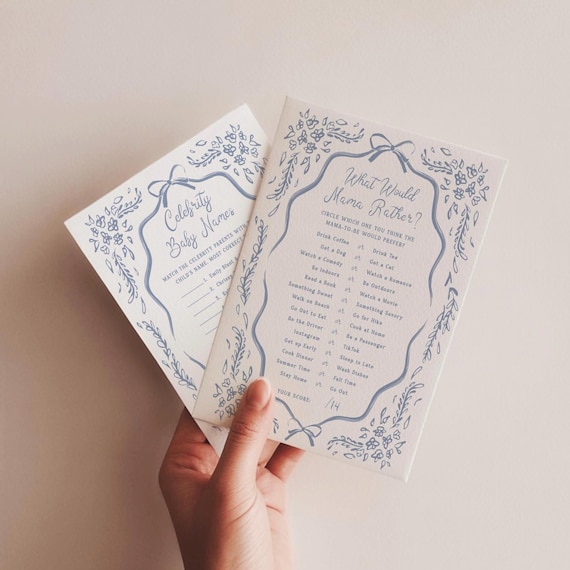 Celebrity
Baby Names
MATCH THE CELEBRITY PARENTS WITH
CHILD'S NAME. MOST CORRECT
1. Emily
2.
3.
What Would
Mama Rather?
CIRCLE WHICH ONE YOU THINK THE
MAMA-TO-BE WOULD PREFER?
Drink Coffee or Drink Tea
Get a Dog or Get a Cat
Watch a Comedy or Watch a Romance
Be Indoors or Be Outdoors
Read a Book or Watch a Movie
Something Sweet or Something Savory
Walk on Beach or Go for Hike
Go Out to Eat or Cook at Home
Be the Driver or Be a Passenger
Instagram or TikTok
Get up Early or Sleep in Late
Cook Dinner or Wash Dishes
Summer Time or Fall Time
Stay Home or Go Out
YOUR SCORE: /14